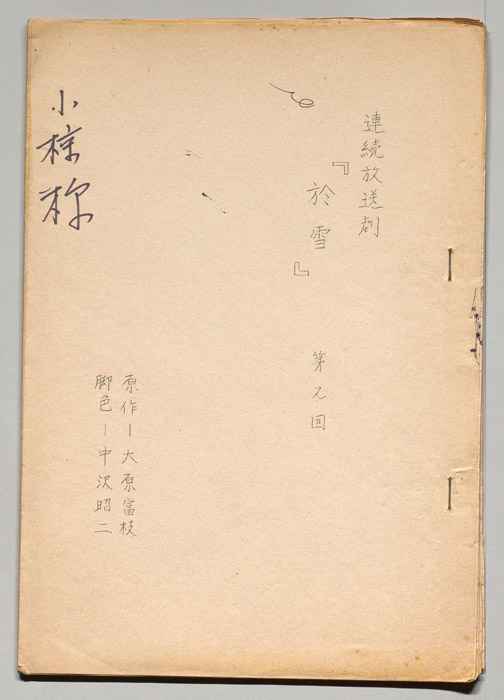 連続放送劇
『於雪』
第
回
原作ー大原富枝
脚色ー中沢昭二
小椋